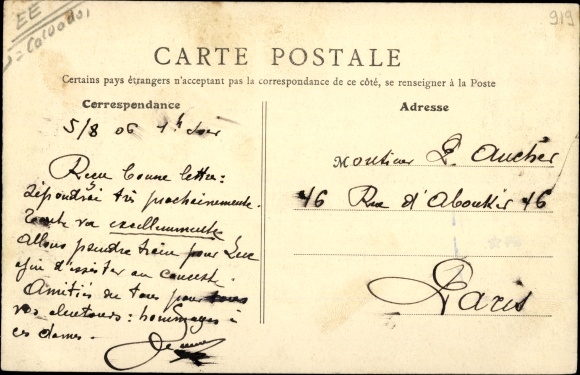 EE
= Calvados
919
CARTE POSTALE
Certains pays étrangers n'acceptant pas la correspondance de ce côté, se renseigner à la Poste
Correspondance
5/8 06 1h Soir
Reçu bonne lettre :
répondrai très prochainement.
Toute va excellemment
Allons prendre train pour Luc
afin d'assister au concert.
Amitiés de tous pour
vos : hommages à
ces dames.
Adresse
Monsieur P. Aucher
46 Rue d'Aboukir 46
Paris